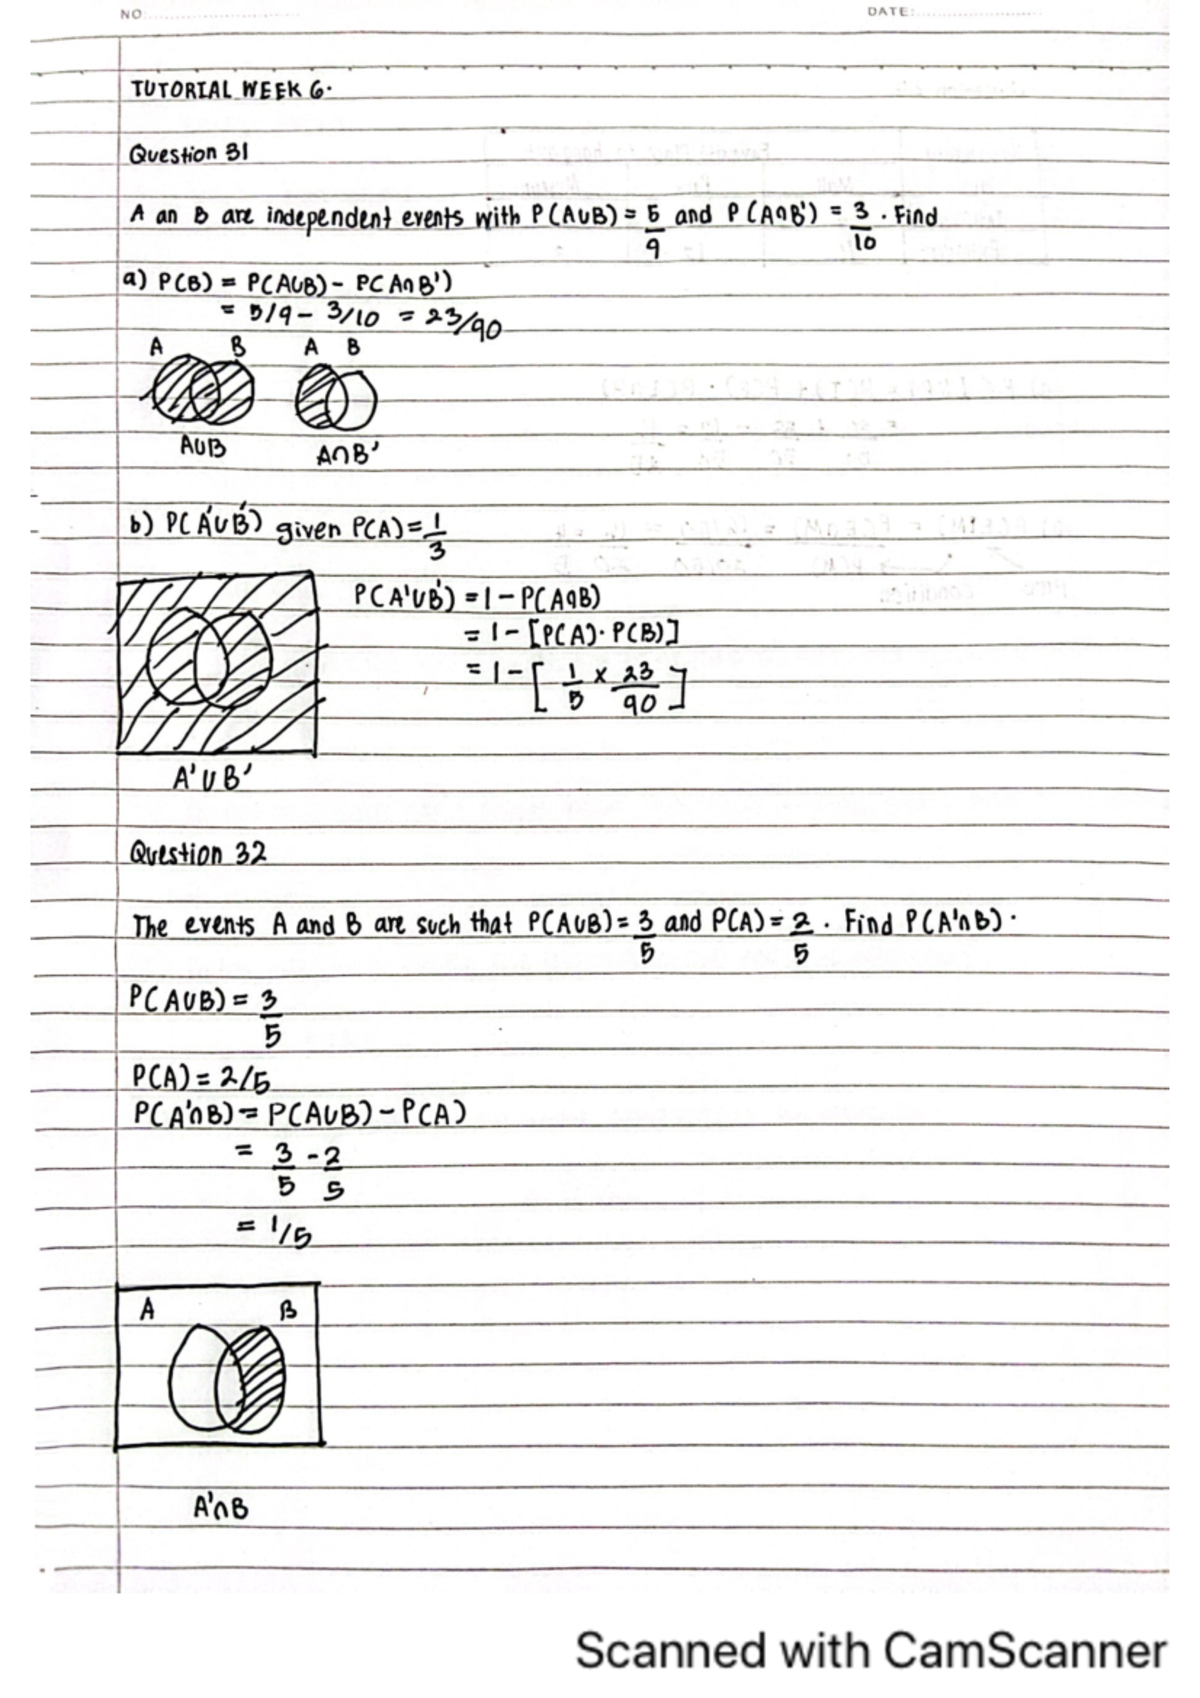 NO:
DATE:
TUTORIAL WEEK 6.
Question 31
A an B are independent events with P(A∪B) = 5/9 and P(A∩B') = 3/10 . Find
a) P(B) = P(A∪B) - P(A∩B')
= 5/9 - 3/10 = 23/90
A B A B
A∪B A∩B'
b) P(A'∪B') given P(A) = 1/3
P(A'∪B') = 1 - P(A∩B)
= 1 - [P(A) · P(B)]
= 1 - [ 1/5 × 23/90 ]
A'∪B'
Question 32
The events A and B are such that P(A∪B) = 3/5 and P(A) = 2/5 . Find P(A'∩B) .
P(A∪B) = 3/5
P(A) = 2/5
P(A'∩B) = P(A∪B) - P(A)
= 3/5 - 2/5
= 1/5
A B
A'∩B
Scanned with CamScanner